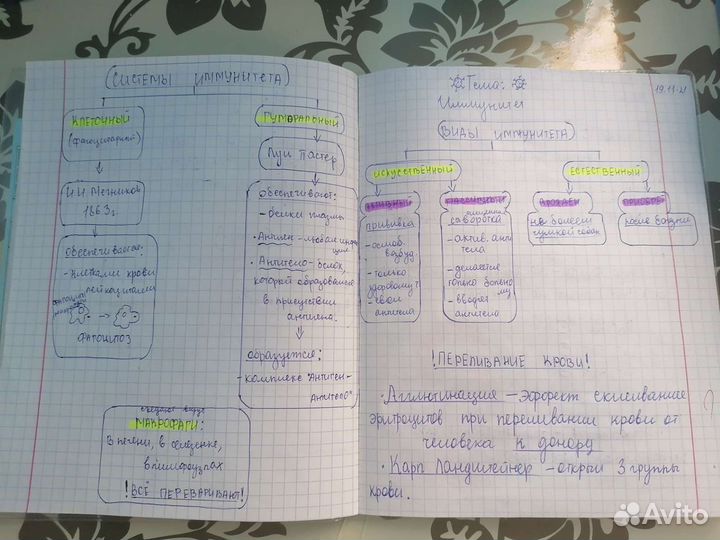 СИСТЕМЫ ИММУНИТЕТА
КЛЕТОЧНЫЙ
(фагоцитарный)
И.И. Мечников
1863 г.
обеспечивается:
- клетками крови
лейкоцитами
ФАГОЦИТОЗ
ГУМОРАЛЬНЫЙ
Луи Пастер
обеспечивают:
- белки плазмы
• Антиген - любая
• Антитело - белок,
который образовался
в присутствии
антигена.
образуется:
- комплекс "Антиген -
Антитело"
МАКРОФАГИ:
в печени, в селезенке,
в лимфоузлах
! ВСЁ ПЕРЕВАРИВАЮТ!
Тема:
Иммунитет
19.11.21
ВИДЫ ИММУНИТЕТА
ИСКУССТВЕННЫЙ
ЕСТЕСТВЕННЫЙ
АКТИВНЫЙ
прививка
- ослаб.
возбуд.
- только
здоровому
- свои
антитела
ПАССИВНЫЙ
сыворотка
- актив. анти
тела
- делается
только больно
му
- вводят
антитела
ВРОЖДЕН
не болеем
чумкой собак
ПРИОБР.
после болезни
! ПЕРЕЛИВАНИЕ КРОВИ!
• Агглютинация - эффект склеивание
эритроцитов при переливании крови от
человека к донору
• Карл Ландштейнер - открыл 3 группы
крови.
Avito